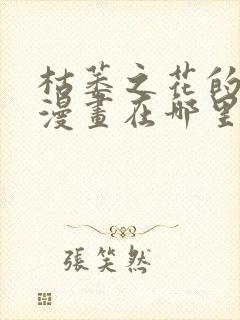 枯萎之花的
漫畫在哪里
張笑然